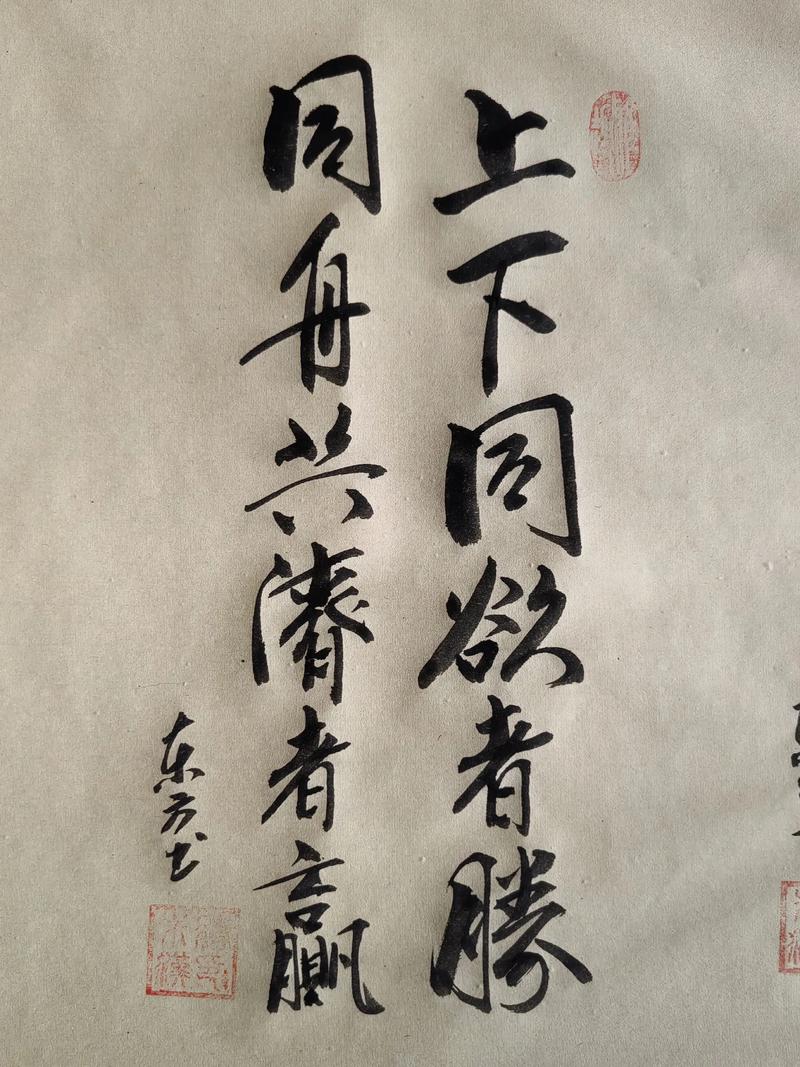 上下同欲者勝
同舟共濟者贏
东方书